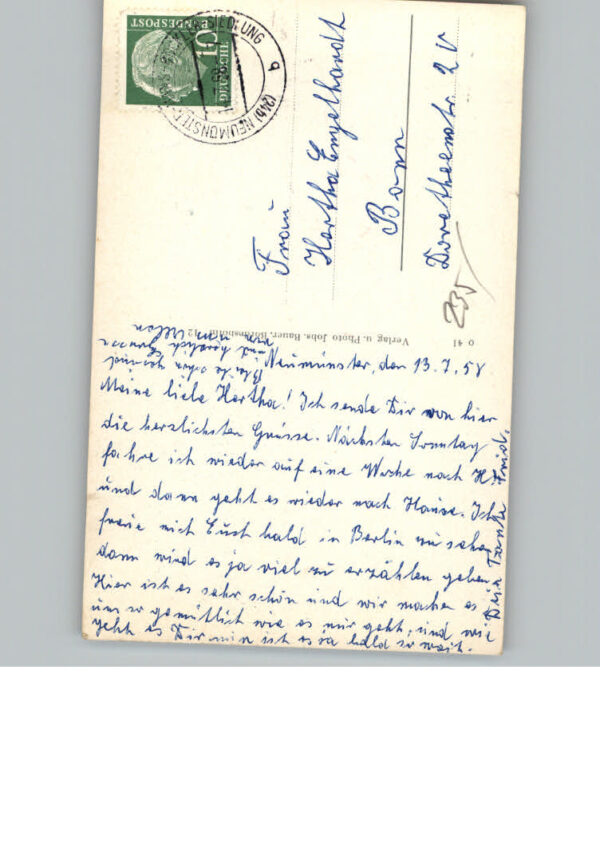 DEUTSCHE BUNDESPOST
10
(24b) NEUMÜNSTER
SIEDLUNG
a
Frau
Hertha Engelhardt
Bonn
Dorotheenstr. 2 V
235
o 41
Verlag u. Photo Johs. Bauer,
Neumünster, den 13.7.58
Meine liebe Hertha! Ich sende Dir von hier
die herzlichsten Grüsse. Nächsten Sonntag
fahre ich wieder auf eine Woche nach
und dann geht es wieder nach Hause. Ich
freue mich Euch bald in Berlin zu sehen
dann wird es ja viel zu erzählen geben.
Hier ist es sehr schön und wir machen es
uns so gemütlich wie es nur geht, und wie
geht es Dir nun ist es ja bald so weit.
Bleibe schön gesund
und herzlich
von
Deine Tante